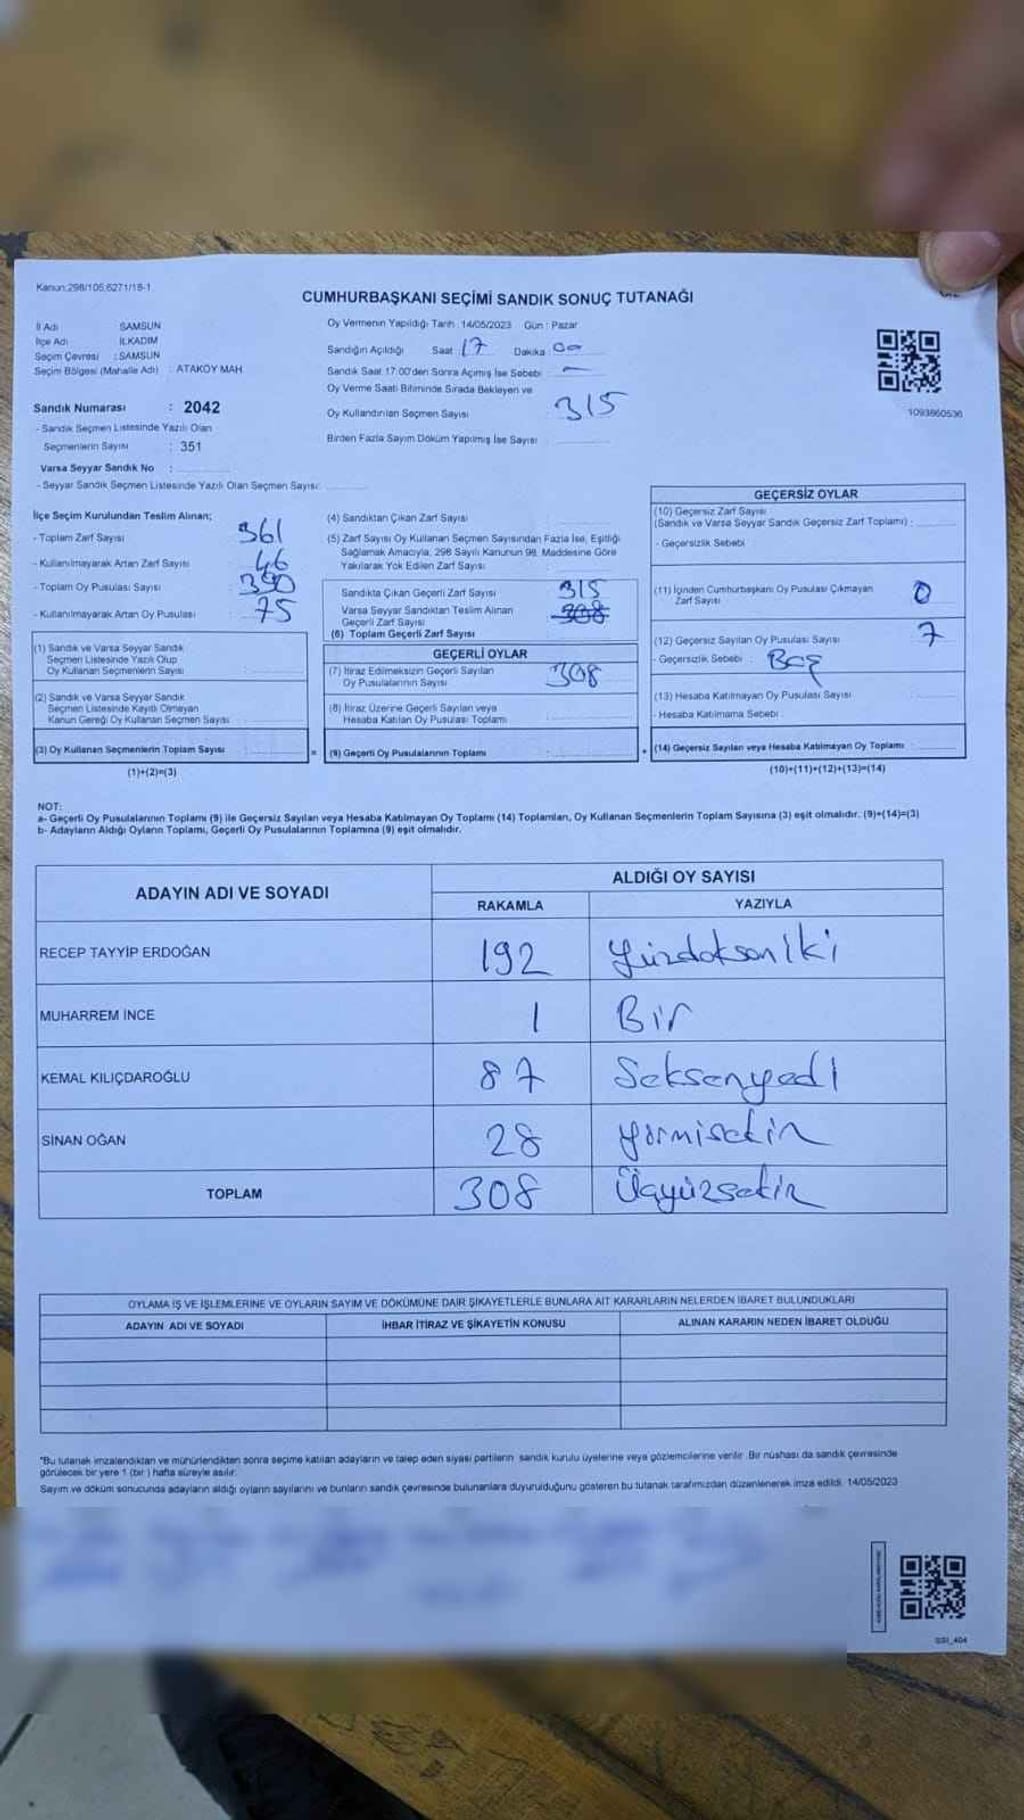 Kanun:298/105,6271/18-1
CUMHURBAŞKANI SEÇİMİ SANDIK SONUÇ TUTANAĞI
İl Adı SAMSUN
İlçe Adı İLKADIM
Seçim Çevresi : SAMSUN
Seçim Bölgesi (Mahalle Adı) : ATAKÖY MAH
Sandık Numarası : 2042
- Sandık Seçmen Listesinde Yazılı Olan
Seçmenlerin Sayısı : 351
Varsa Seyyar Sandık No :
- Seyyar Sandık Seçmen Listesinde Yazılı Olan Seçmen Sayısı:
Oy Vermenin Yapıldığı Tarih : 14/05/2023 Gün : Pazar
Sandığın Açıldığı Saat : 17 Dakika : 00
Sandık Saat 17:00'den Sonra Açılmış İse Sebebi : —
Oy Verme Saati Bitiminde Sırada Bekleyen ve
Oy Kullandırılan Seçmen Sayısı 315
Birden Fazla Sayım Döküm Yapılmış İse Sayısı :
1093860536
İlçe Seçim Kurulundan Teslim Alınan;
- Toplam Zarf Sayısı 361
- Kullanılmayarak Artan Zarf Sayısı 46
- Toplam Oy Pusulası Sayısı 390
- Kullanılmayarak Artan Oy Pusulası 75
(1) Sandık ve Varsa Seyyar Sandık
Seçmen Listesinde Yazılı Olup
Oy Kullanan Seçmenlerin Sayısı
(2) Sandık ve Varsa Seyyar Sandık
Seçmen Listesinde Kayıtlı Olmayan
Kanun Gereği Oy Kullanan Seçmen Sayısı
(3) Oy Kullanan Seçmenlerin Toplam Sayısı
(1)+(2)=(3)
(4) Sandıktan Çıkan Zarf Sayısı
(5) Zarf Sayısı Oy Kullanan Seçmen Sayısından Fazla İse, Eşitliği
Sağlamak Amacıyla, 298 Sayılı Kanunun 98. Maddesine Göre
Yakılarak Yok Edilen Zarf Sayısı
Sandıkta Çıkan Geçerli Zarf Sayısı 315
Varsa Seyyar Sandıktan Teslim Alınan 308
Geçerli Zarf Sayısı
(6) Toplam Geçerli Zarf Sayısı
GEÇERLİ OYLAR
(7) İtiraz Edilmeksizin Geçerli Sayılan 308
Oy Pusulalarının Sayısı
(8) İtiraz Üzerine Geçerli Sayılan veya
Hesaba Katılan Oy Pusulası Toplamı
= (9) Geçerli Oy Pusulalarının Toplamı
GEÇERSİZ OYLAR
(10) Geçersiz Zarf Sayısı
(Sandık ve Varsa Seyyar Sandık Geçersiz Zarf Toplamı) :
- Geçersizlik Sebebi
(11) İçinden Cumhurbaşkanı Oy Pusulası Çıkmayan 0
Zarf Sayısı
(12) Geçersiz Sayılan Oy Pusulası Sayısı 7
- Geçersizlik Sebebi : Boş
(13) Hesaba Katılmayan Oy Pusulası Sayısı
- Hesaba Katılmama Sebebi
+ (14) Geçersiz Sayılan veya Hesaba Katılmayan Oy Toplamı :
(10)+(11)+(12)+(13)=(14)
NOT:
a- Geçerli Oy Pusulalarının Toplamı (9) ile Geçersiz Sayılan veya Hesaba Katılmayan Oy Toplamı (14) Toplamları, Oy Kullanan Seçmenlerin Toplam Sayısına (3) eşit olmalıdır. (9)+(14)=(3)
b- Adayların Aldığı Oyların Toplamı, Geçerli Oy Pusulalarının Toplamına (9) eşit olmalıdır.
ADAYIN ADI VE SOYADI ALDIĞI OY SAYISI
RAKAMLA YAZIYLA
RECEP TAYYİP ERDOĞAN 192 Yüzdoksaniki
MUHARREM İNCE 1 Bir
KEMAL KILIÇDAROĞLU 87 Seksenyedi
SİNAN OĞAN 28 yirmisekiz
TOPLAM 308 Üçyüzsekiz
OYLAMA İŞ VE İŞLEMLERİNE VE OYLARIN SAYIM VE DÖKÜMÜNE DAİR ŞİKAYETLERLE BUNLARA AİT KARARLARIN NELERDEN İBARET BULUNDUKLARI
ADAYIN ADI VE SOYADI İHBAR İTİRAZ VE ŞİKAYETİN KONUSU ALINAN KARARIN NEDEN İBARET OLDUĞU
"Bu tutanak imzalandıktan ve mühürlendikten sonra seçime katılan adayların ve talep eden siyasi partilerin sandık kurulu üyelerine veya gözlemcilerine verilir. Bir nüshası da sandık çevresinde
görülecek bir yere 1 (bir) hafta süreyle asılır.
Sayım ve döküm sonucunda adayların aldığı oyların sayılarını ve bunların sandık çevresinde bulunanlara duyurulduğunu gösteren bu tutanak tarafımızdan düzenlenerek imza edildi. 14/05/2023
SSI_404